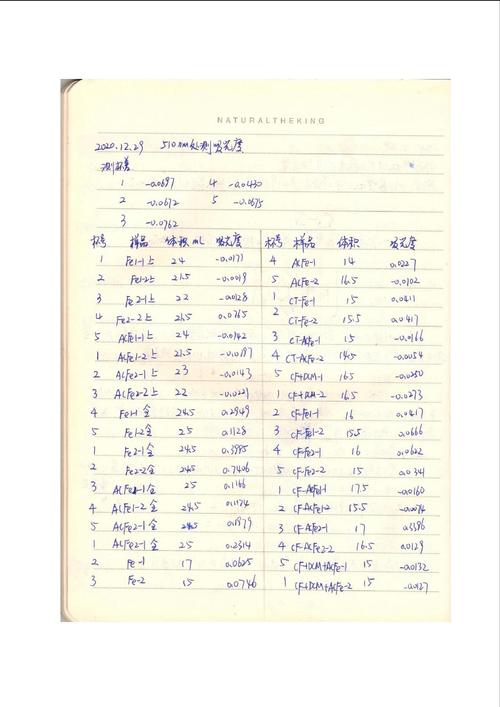 NATURALTHEKING
2020.12.29 510nm处测吸光度
测杯差
1 -0.0697 4 -0.0430
2 -0.0672 5 -0.0675
3 -0.0762
杯号 样品 体积mL 吸光度
1 Fe1-1上 24 -0.0171
2 Fe1-2上 21.5 -0.0019
3 Fe2-1上 22 -0.0128
4 Fe2-2上 21.5 0.0765
5 AcFe1-1上 24 -0.0142
1 AcFe1-2上 21.5 -0.0187
2 AcFe2-1上 23 -0.0143
3 AcFe2-2上 22 -0.0221
4 Fe1-1全 24.5 0.2949
5 Fe1-2全 25 0.1128
1 Fe2-1全 24.5 0.3985
2 Fe2-2全 24.5 0.7406
3 AcFe1-1全 25 0.1146
4 AcFe1-2全 24.5 0.1174
5 AcFe2-1全 24.5 0.1879
1 AcFe2-1全 25 0.2314
2 Fe-1 17 0.0625
3 Fe-2 15 0.0746
杯号 样品 体积 吸光度
4 AcFe-1 14 0.0227
5 AcFe-2 16.5 -0.0102
1 CT-Fe-1 15 0.0411
2 CT-Fe-2 15.5 0.0417
3 CT-AcFe-1 15 -0.0166
4 CT-AcFe-2 14.5 -0.0054
5 CF+DCM-1 16.5 -0.0250
1 CF+DCM-2 16.5 -0.0273
2 CF-Fe1-1 16 0.0417
3 CF-Fe1-2 15.5 0.0666
4 CF-Fe2-1 16 0.0622
5 CF-Fe2-2 15 0.0341
1 CF-AcFe1-1 17.5 -0.0160
2 CF-AcFe1-2 15.5 -0.0074
3 CF-AcFe2-1 17 0.3386
4 CF-AcFe2-2 16.5 0.0129
5 CF+DCM+AcFe-1 15 -0.0132
1 CF+DCM+AcFe-2 15 -0.0127